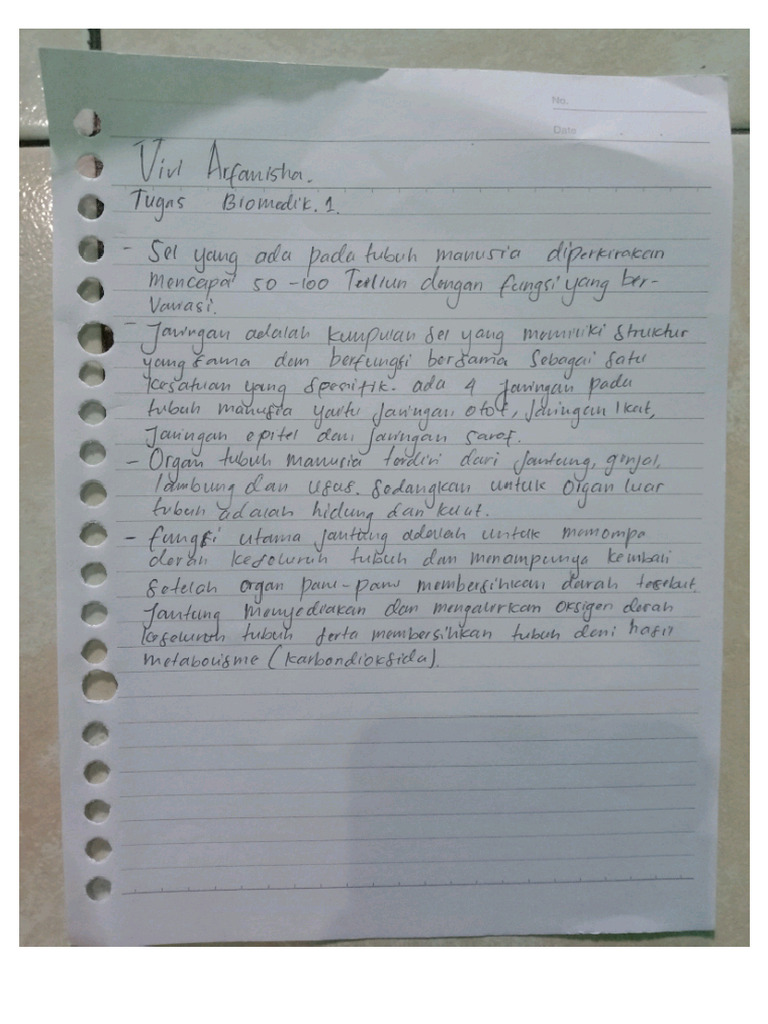 No.
Date
Vivi Arfanisha.
Tugas Biomedik. 1.
- Sel yang ada pada tubuh manusia diperkirakan
mencapai 50 - 100 Terliun dengan fungsi yang ber-
variasi.
- Jaringan adalah kumpulan sel yang memiliki struktur
yang sama dan berfungsi bersama sebagai satu
kesatuan yang spesifik. ada 4 jaringan pada
tubuh manusia yaitu jaringan otot, jaringan ikat,
Jaringan epitel dan jaringan saraf.
- Organ tubuh manusia terdiri dari jantung, ginjal,
lambung dan usus. sedangkan untuk organ luar
tubuh adalah hidung dan kulit.
- fungsi utama jantung adalah untuk memompa
darah keseluruh tubuh dan menampungnya kembali
setelah organ paru-paru membersihkan darah tersebut.
Jantung menyediakan dan mengalirkan oksigen darah
keseluruh tubuh serta membersihkan tubuh dari hasil
metabolisme (karbondioksida).